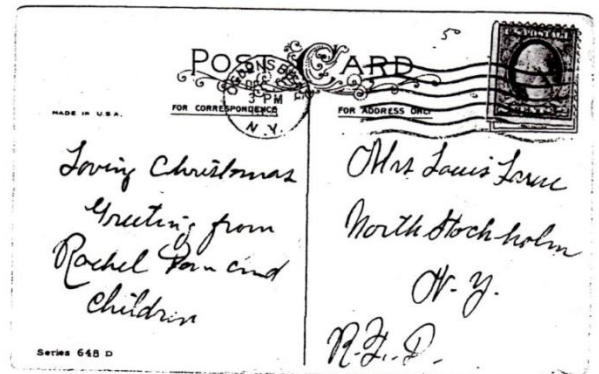 5⁰
POST CARD
OGDENSBURG
DEC
3 PM
N.Y.
MADE IN U.S.A.
FOR CORRESPONDENCE
FOR ADDRESS ONLY
Loving Christmas
Greeting from
Rachel and
Children
Mrs Louis
North Stockholm
N.Y.
R.F.D.
Series 648 D